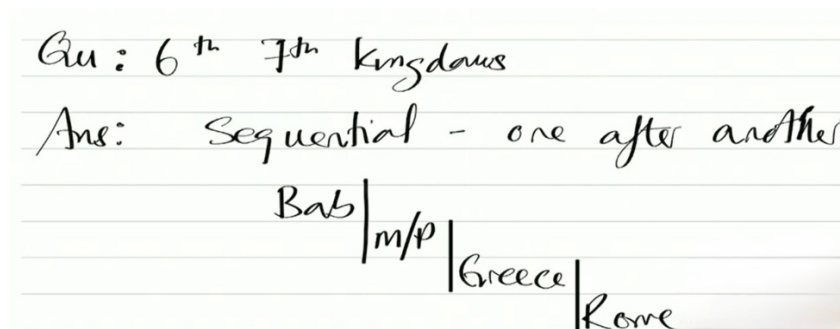 Qu: 6th 7th kingdoms
Ans: Sequential - one after another
Bab
m/p
Greece
Rome